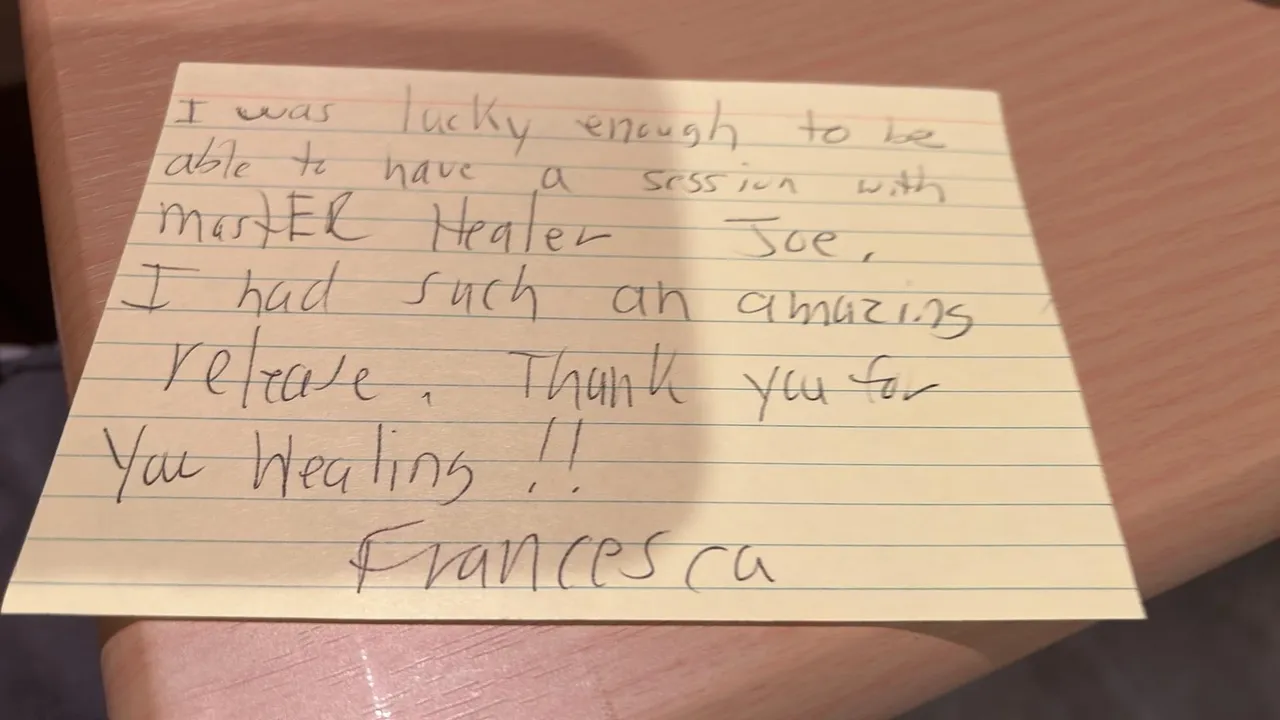 I was lucky enough to be
able to have a session with
mastER Healer Joe,
I had such an amazing
release. Thank you for
You Healing !!
Francesca